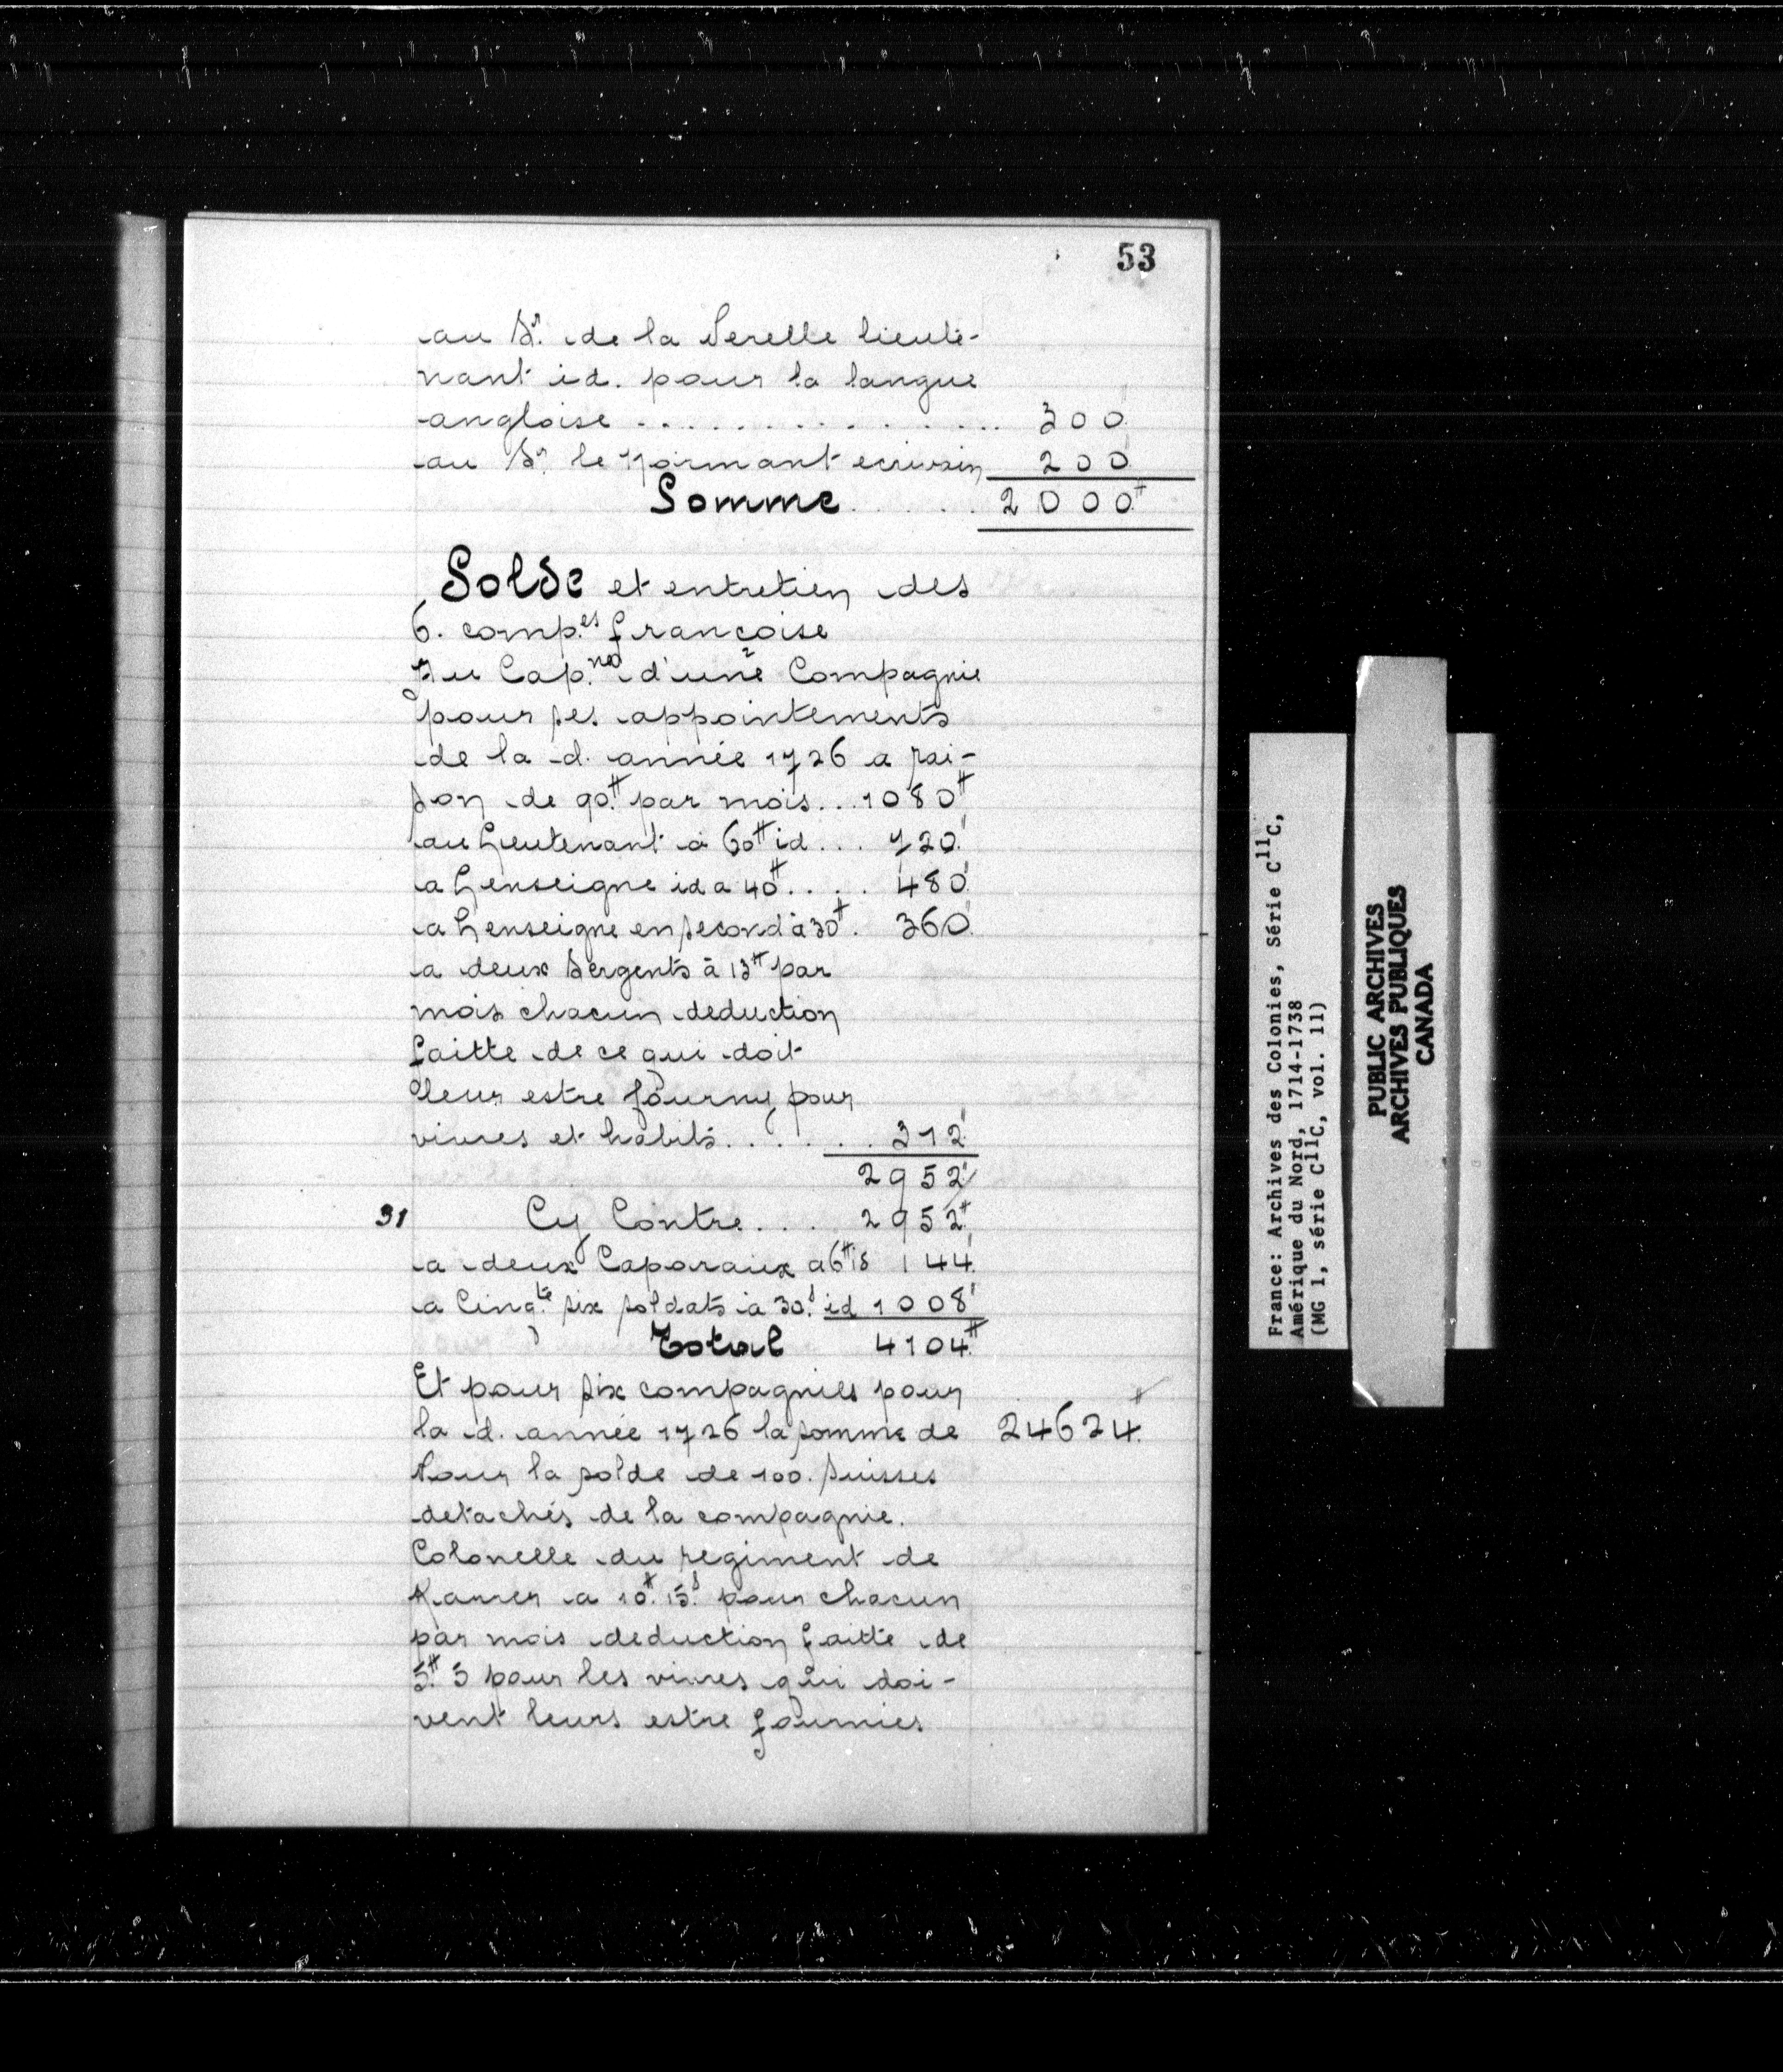 53
au Sr. de la Perelle lieute-
nant id. pour la langue
angloise . . . . . . . . . . . . . . . 300.
au Sr. le normant ecrivain 200.
Somme . . . . . 2000#
Solde et entretien des
6. comp.es françoise
Au Cap.ne d'une Compagnie
pour ses appointements
de la d. année 1726 a rai-
son de 90.# par mois... 1080#
au Lieutenant à 60# id... 720.
a Lenseigne id a 40#.... 480.
a Lenseigne en second à 30#. 360.
a deux Sergents à 13# par
mois chacun deduction
faitte de ce qui doit
leur estre fourny pour
vivres et habits....... 312.
2952
31 Cy Contre... 2952#
a deux Caporaux a 6# id 144.
a Cinqte six soldats à 30.s id 1008
Total 4104.#
Et pour six compagnies pour
la d. année 1726 la somme de 24624.#
Pour la solde de 100. suisses
detachés de la compagnie.
Colonelle du regiment de
Karrer a 10.# 15.s pour chacun
par mois deduction faitte de
5.# 5 pour les vivres qui doi-
vent leurs estre fournies
France: Archives des Colonies, Série C11C,
Amérique du Nord, 1714-1738
(MG 1, série C11C, vol. 11)
PUBLIC ARCHIVES
ARCHIVES PUBLIQUES
CANADA